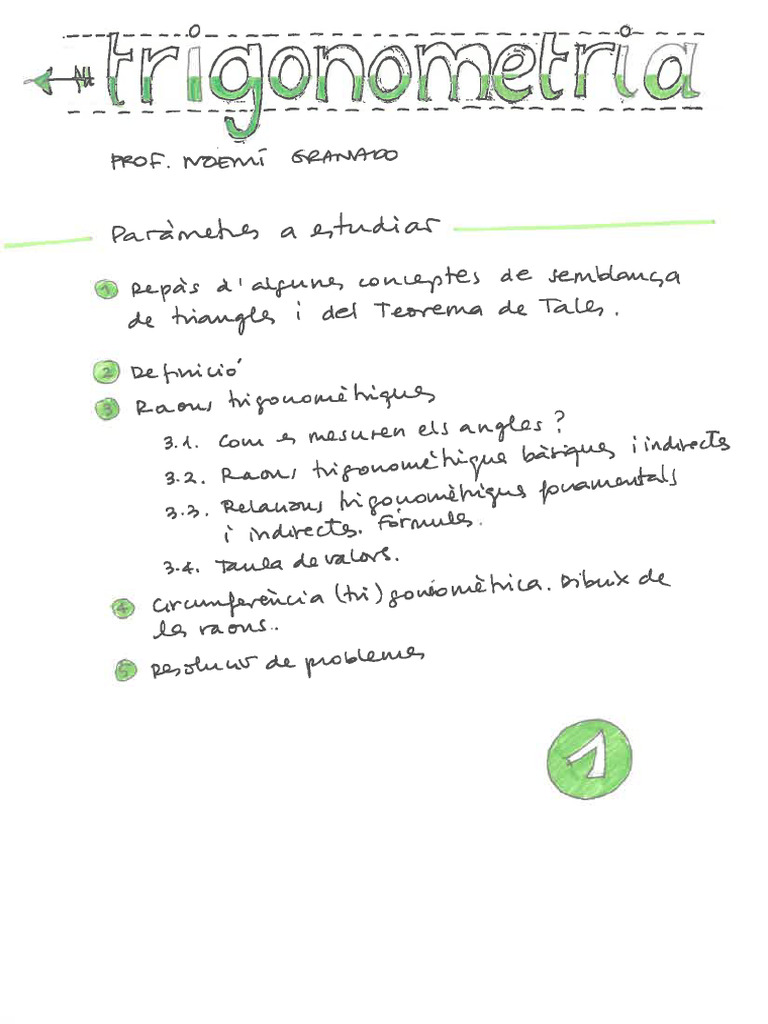 trigonometria
PROF. NOEMÍ GRANADO
Paràmetres a estudiar
1 Repàs d'algunes conceptes de semblança
de triangles i del Teorema de Tales.
2 Definició
3 Raons trigonomètriques
3.1. Com es mesuren els angles?
3.2. Raons trigonomètriques bàsiques i indirectes
3.3. Relacions trigonomètriques fonamentals
i indirectes. Fórmules.
3.4. Taula de valors.
4 Circumferència (tri)goniomètrica. Dibuix de
les raons..
5 Resolució de problemes
1